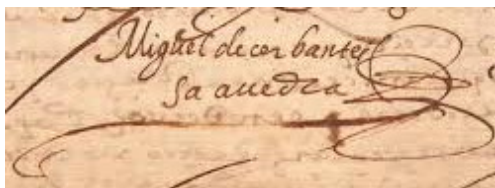 Miguel de cerbantes
saauedra